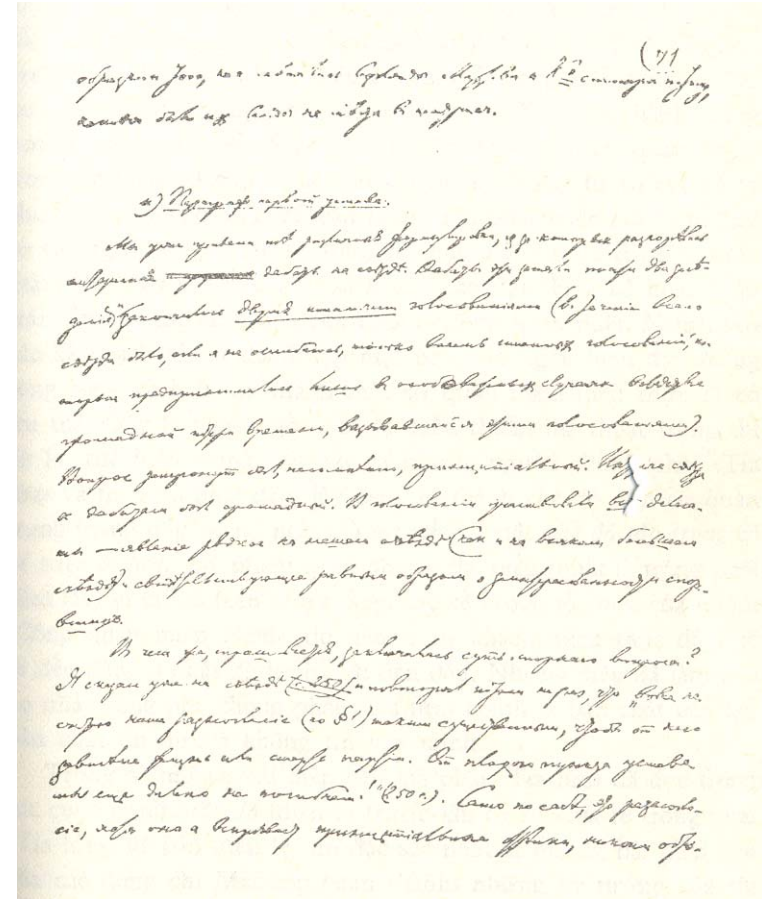 (71
образчики того, как
было их на съезде в
и) Параграф первый устава.
Мы уже привели тѣ различныя формулировки, из-за которых разгорѣлись
интересные дебаты на съѣздѣ. Дебаты эти заняли почти два засѣ-
данія и закончились двумя именными голосованіями (в теченіе всего
съѣзда было, если я не ошибаюсь, только восемь именных голосований, ко-
торыя предпринимались лишь в особо важных случаях ввиду
громадной потери времени, вызывавшейся этими голосованиями).
Вопрос затронут был, несомнѣнно, принципіальный. Интерес съезда
к дебатам был громадный. В голосовании участвовали всѣ делега-
ты — явленіе рѣдкое на нашем съѣздѣ (как и на всяком большом
съѣздѣ) и свидѣтельствующее равным образом о заинтересованности спор-
ивших.
В чем же, спрашивается, заключалась суть спорного вопроса?
Я сказал уже на съѣздѣ (с. 250) и повторял потом не раз, что "вовсе не
считаю наше разногласіе (по § 1) таким существенным, чтобы от него
зависѣла жизнь или смерть партіи. От плохого пункта устава
мы еще далеко не погибнем!" (250 с.). Само по себѣ, это разногла-
сіе, хотя оно и вскрывает принципіальные оттѣнки, никоим обра-